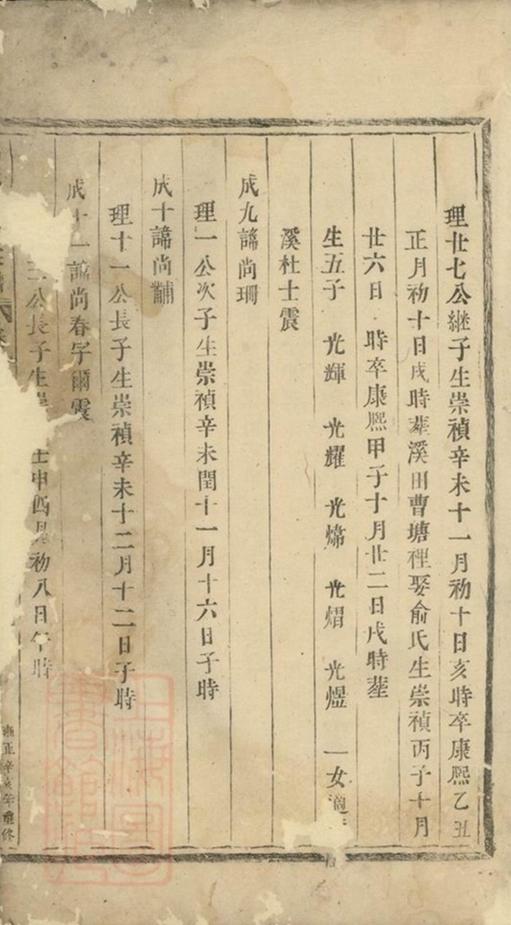 理廿七公繼子生崇禎辛未十一月初十日亥時卒康熙乙丑
正月初十日戌時葬溪田曹塘裡娶俞氏生崇禎丙子十月
廿六日 時卒康熙甲子十月廿二日戌時葬
生五子 光輝 光耀 光煒 光熠 光煜 一女適
溪杜士震
成九諱尚珊
理一公次子生崇禎辛未閏十一月十六日子時
成十諱尚黼
理十一公長子生崇禎辛未十二月十二日子時
成十一諱尚春字爾震
公長子生 壬申四月初八日午時
雍正辛亥年重修